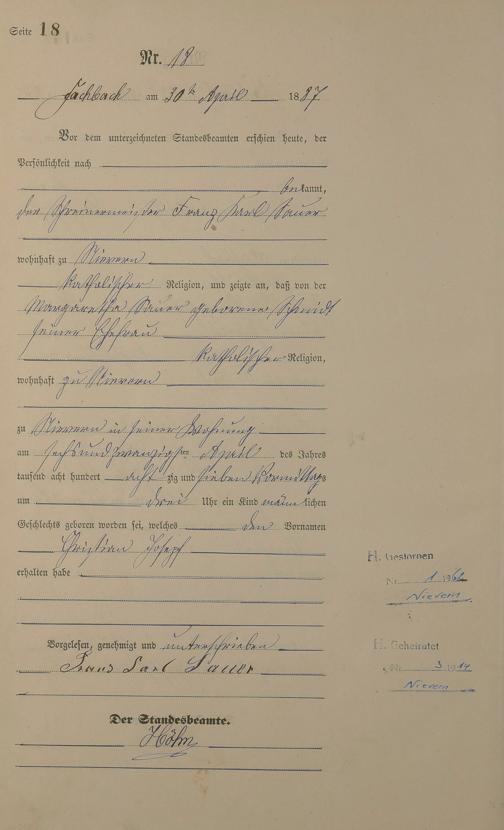 Seite 18
Nr. 18
Fachbach am 30ten April 1887
Vor dem unterzeichneten Standesbeamten erschien heute, der
Persönlichkeit nach
bekannt,
der Schreinermeister Franz Karl Sauer
wohnhaft zu Nievern
katholischer Religion, und zeigte an, daß von der
Margaretha Sauer geborene Schmidt
seiner Ehefrau
katholischer Religion,
wohnhaft zu Nievern
zu Nievern in seiner Wohnung
am sechsundzwanzigsten April des Jahres
tausend acht hundert acht zig und sieben Vormittags
um drei Uhr ein Kind männlichen
Geschlechts geboren worden sei, welches den Vornamen
Christian Josepf
erhalten habe
Vorgelesen, genehmigt und unterschrieben
Franz Carl Sauer
Der Standesbeamte.
Höhn
H. Gestorben
Nr. 1 1962
Nievern
H. Geheiratet
Nr. 3 1914
Nievern